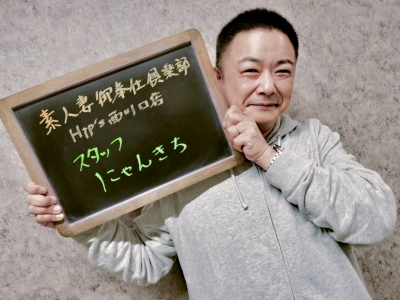 素人妻御奉仕倶楽部
Hip's西川口店
スタッフ
にゃんきち